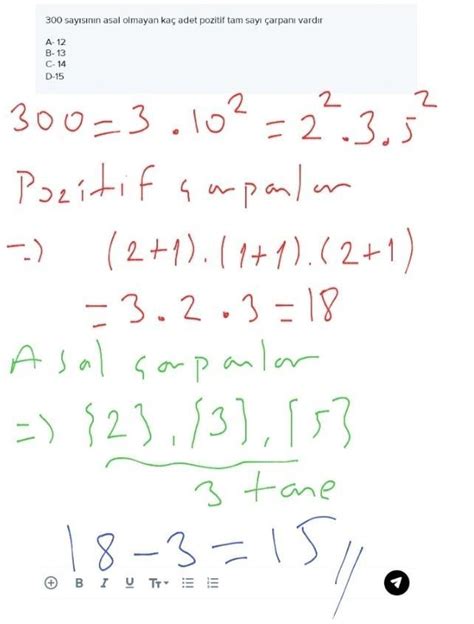 300 sayısının asal olmayan kaç adet pozitif tam sayı çarpanı vardır
A- 12
B- 13
C- 14
D-15
300 = 3 . 10² = 2² . 3 . 5²
Pozitif çarpanlar
=> (2+1) . (1+1) . (2+1)
= 3 . 2 . 3 = 18
Asal çarpanlar
=> {2}, {3}, {5}
3 tane
18 - 3 = 15 //
B I U TT